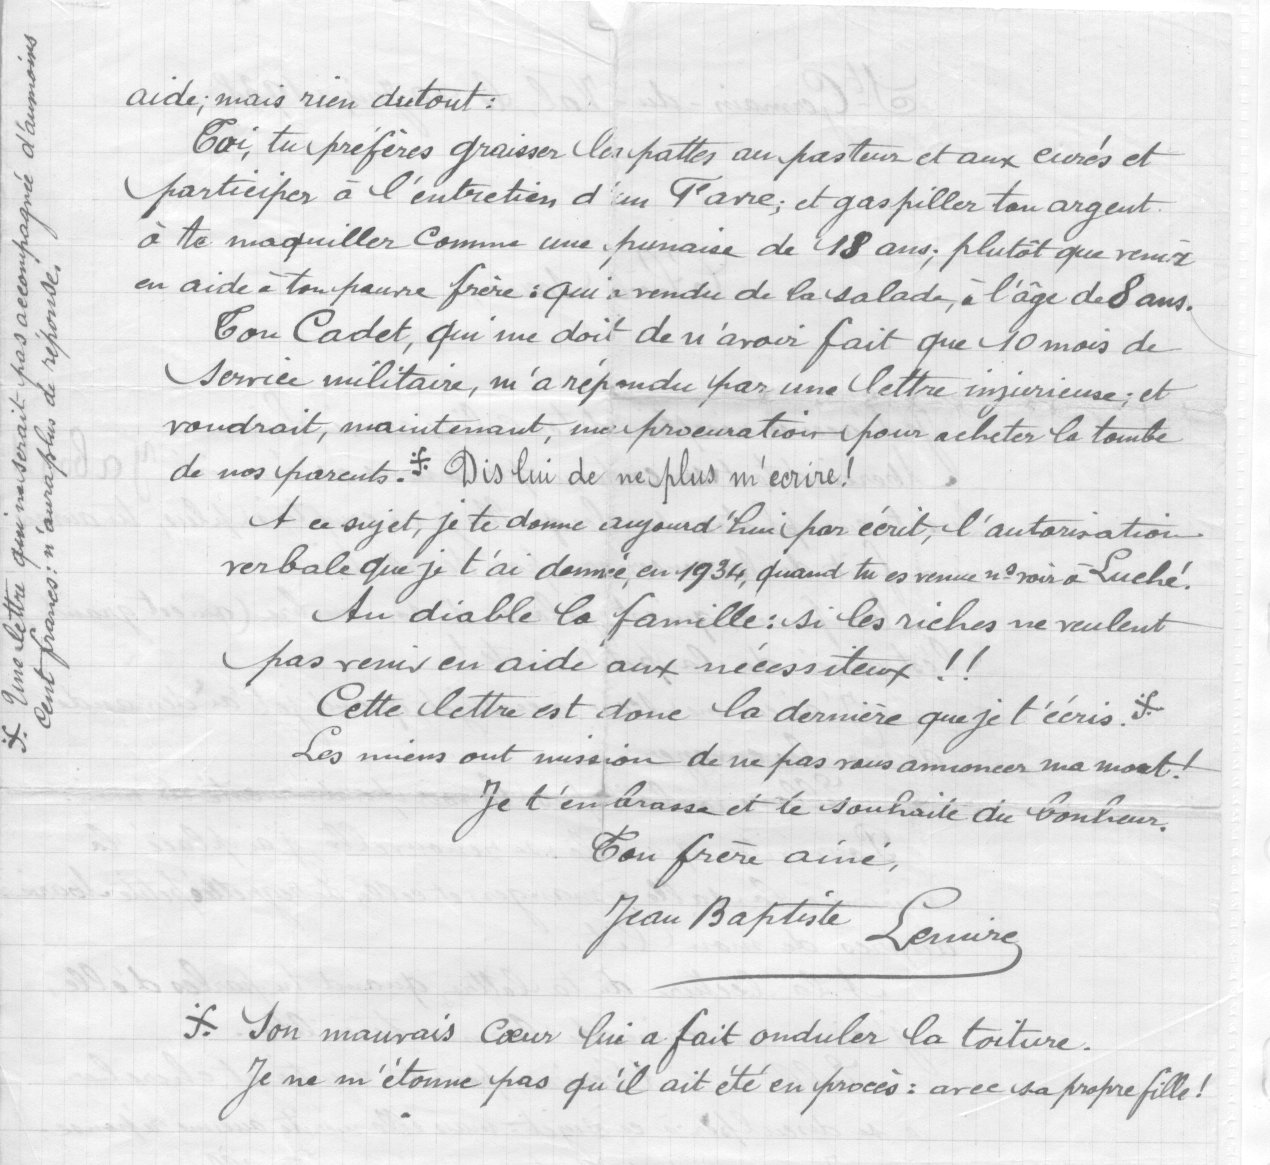 aide; mais rien du tout :
Toi, tu préfères graisser les pattes au pasteur et aux curés et
participer à l'entretien d'un Favre; et gaspiller ton argent
à te maquiller comme une punaise de 18 ans; plutôt que venir
en aide à ton pauvre frère : qui a vendu de la salade, à l'âge de 8 ans.
Ton Cadet, qui me doit de n'avoir fait que 10 mois de
service militaire, m'a répondu par une lettre injurieuse; et
voudrait, maintenant, ma procuration pour acheter la tombe
de nos parents. ※ Dis lui de ne plus m'ecrire !
A ce sujet, je te donne aujourd'hui par écrit, l'autorisation
verbale que je t'ai donnée, en 1934, quand tu es venue ns voir à Luché.
Au diable la famille : si les riches ne veulent
pas venir en aide aux nécessiteux !!
Cette lettre est donc la dernière que je t'écris. ※
Les miens ont mission de ne pas vous annoncer ma mort !
Je t'embrasse et te souhaite du bonheur.
Ton frère ainé,
Jean Baptiste Lemire
※ Son mauvais cœur lui a fait onduler la toiture.
Je ne m'étonne pas qu'il ait été en procès : avec sa propre fille !
※ Une lettre qui ne serait pas accompagnée d'aumoins
Cent francs : n'aura plus de réponse.